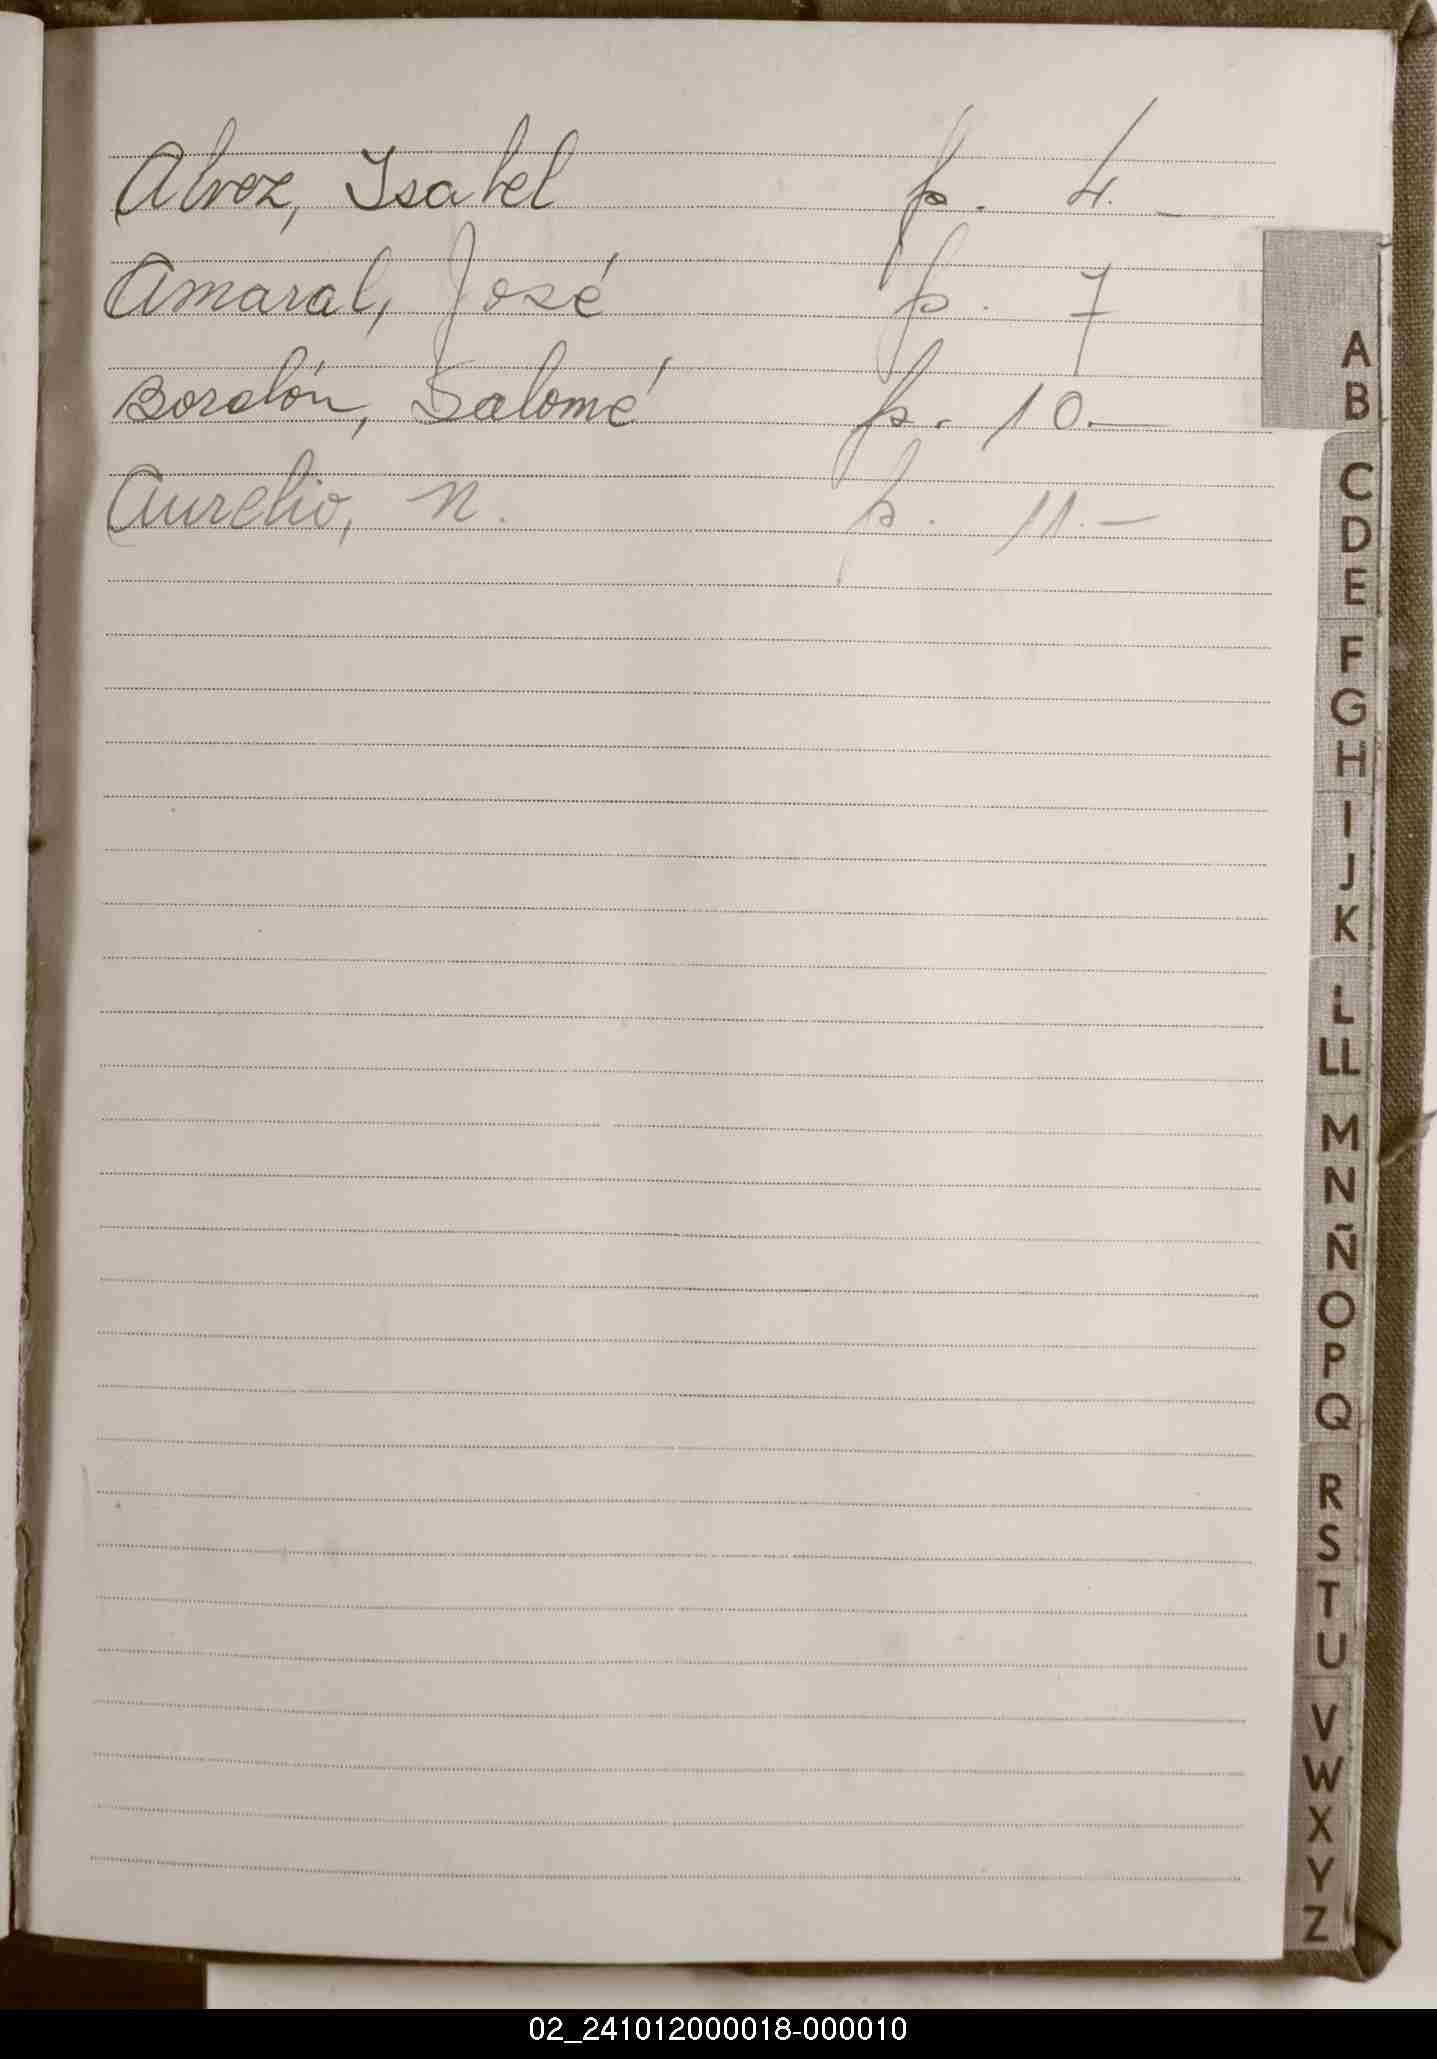 Alvez, Isabel p. 4.-
Amaral, José p. 7
Bordón, Salomé p. 10.-
Aurelio, N. p. 11.-
A
B
C
D
E
F
G
H
I
J
K
L
LL
M
N
Ñ
O
P
Q
R
S
T
U
V
W
X
Y
Z
02_241012000018-000010